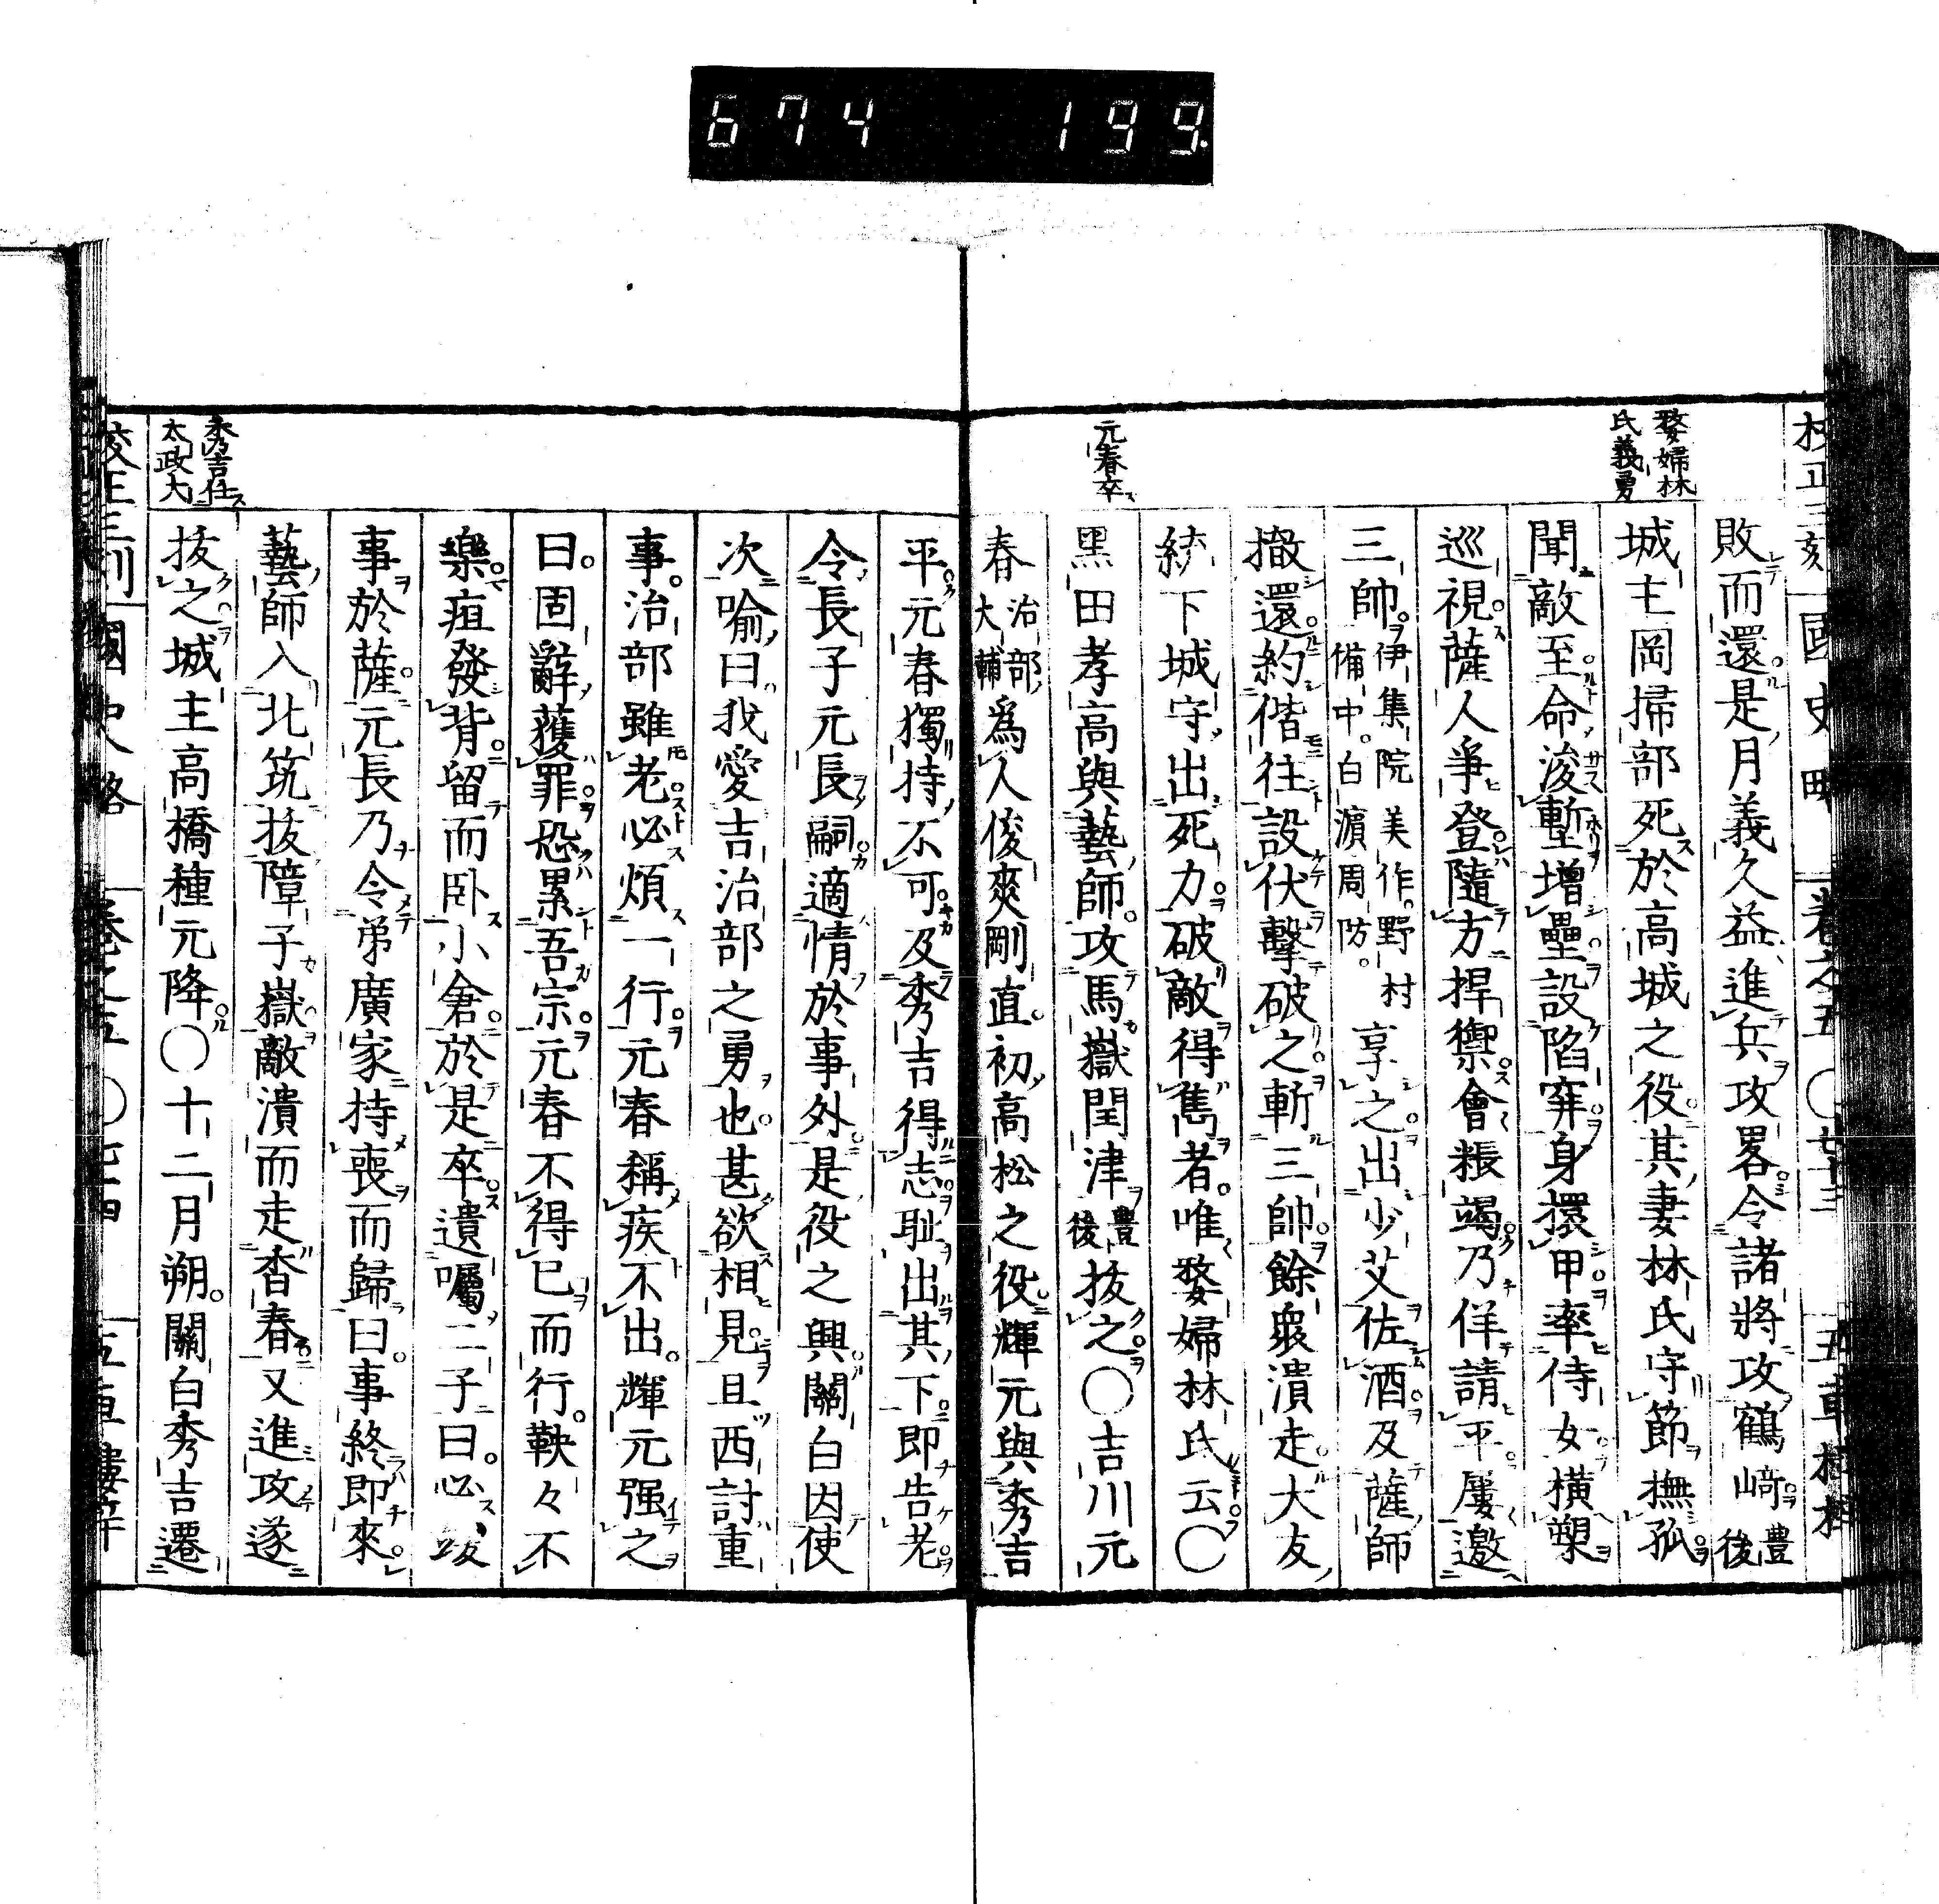 674 199
婺婦林
氏義勇
敗而還是月義久益進兵攻畧令諸將攻鶴﨑豊後
城主岡掃部死於高城之役其妻林氏守節撫孤
聞敵至命浚塹增壘設陷穽身擐甲率侍女橫槊
巡視薩人爭登隨方捍禦會粻竭乃佯請平屢邀
三帥伊集院美作野村備中白濵周防享之出少艾佐酒及薩師
撤還約偕往設伏擊破之斬三帥餘衆潰走大友
統下城守出死力破敵得雋者唯婺婦林氏云〇
元春卒
黑田孝高與藝師攻馬嶽閏津豊後拔之〇吉川元
春治部大輔爲人俊爽剛直初高松之役輝元與秀吉
平元春獨持不可及秀吉得志恥出其下即告老
令長子元長嗣適情於事外是役之興關白因使
次喩曰我愛吉治部之勇也甚欲相見且西討重
事治部雖老必煩一行元春稱疾不出輝元强之
曰固辭獲罪恐累吾宗元春不得已而行鞅々不
樂疽發背留而卧小倉於是卒遺囑二子曰必竣
事於薩元長乃令弟廣家持喪而歸曰事終即來
藝師入北筑拔障子嶽敵潰而走杳春又進攻遂
秀吉任
太政大
拔之城主高橋種元降〇十二月朔關白秀吉遷